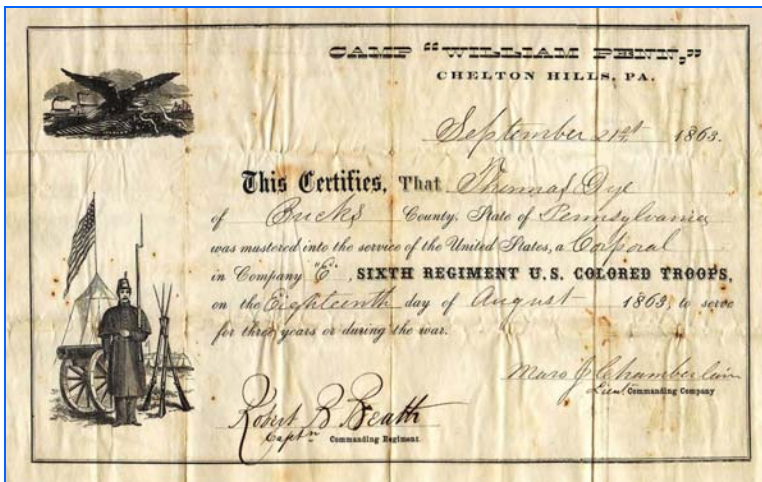 CAMP "WILLIAM PENN,"
CHELTON HILLS, PA.
September 21st 1863.
This Certifies, That Thomas Dye
of Bucks County, State of Pennsylvania
was mustered into the service of the United States, a Corporal
in Company "E", SIXTH REGIMENT U.S. COLORED TROOPS,
on the Eighteenth day of August 1863, to serve
for three years or during the war.
J Chamberlain
Lieut. Commanding Company
Robert B Beath
Captn Commanding Regiment